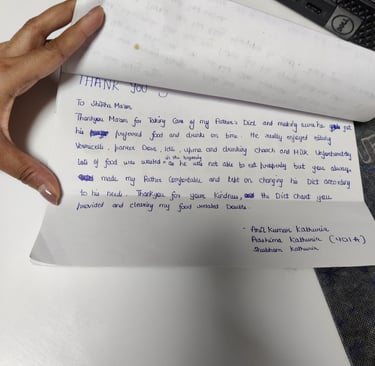 THANK YOU
To Shikha Ma'am
Thankyou Ma'am for Taking Care of my Father's Diet and making sure he got
his preferred food and drinks on time. He really enjoyed eating
Vermicelli, Paneer Dosa, Idli, Upma and drinking Chaach and Milk. Unfortunately
lots of food was wasted in the beginning as he was not able to eat properly but you always
made my Father Comfortable and kept on changing his Diet according
to his needs. Thankyou for your kindness, the Diet Chart you
provided and clearing my food related Doubts.
- Anil Kumar Kathuria
Prashima Kathuria (401A)
Shubham Kathuria
DELL